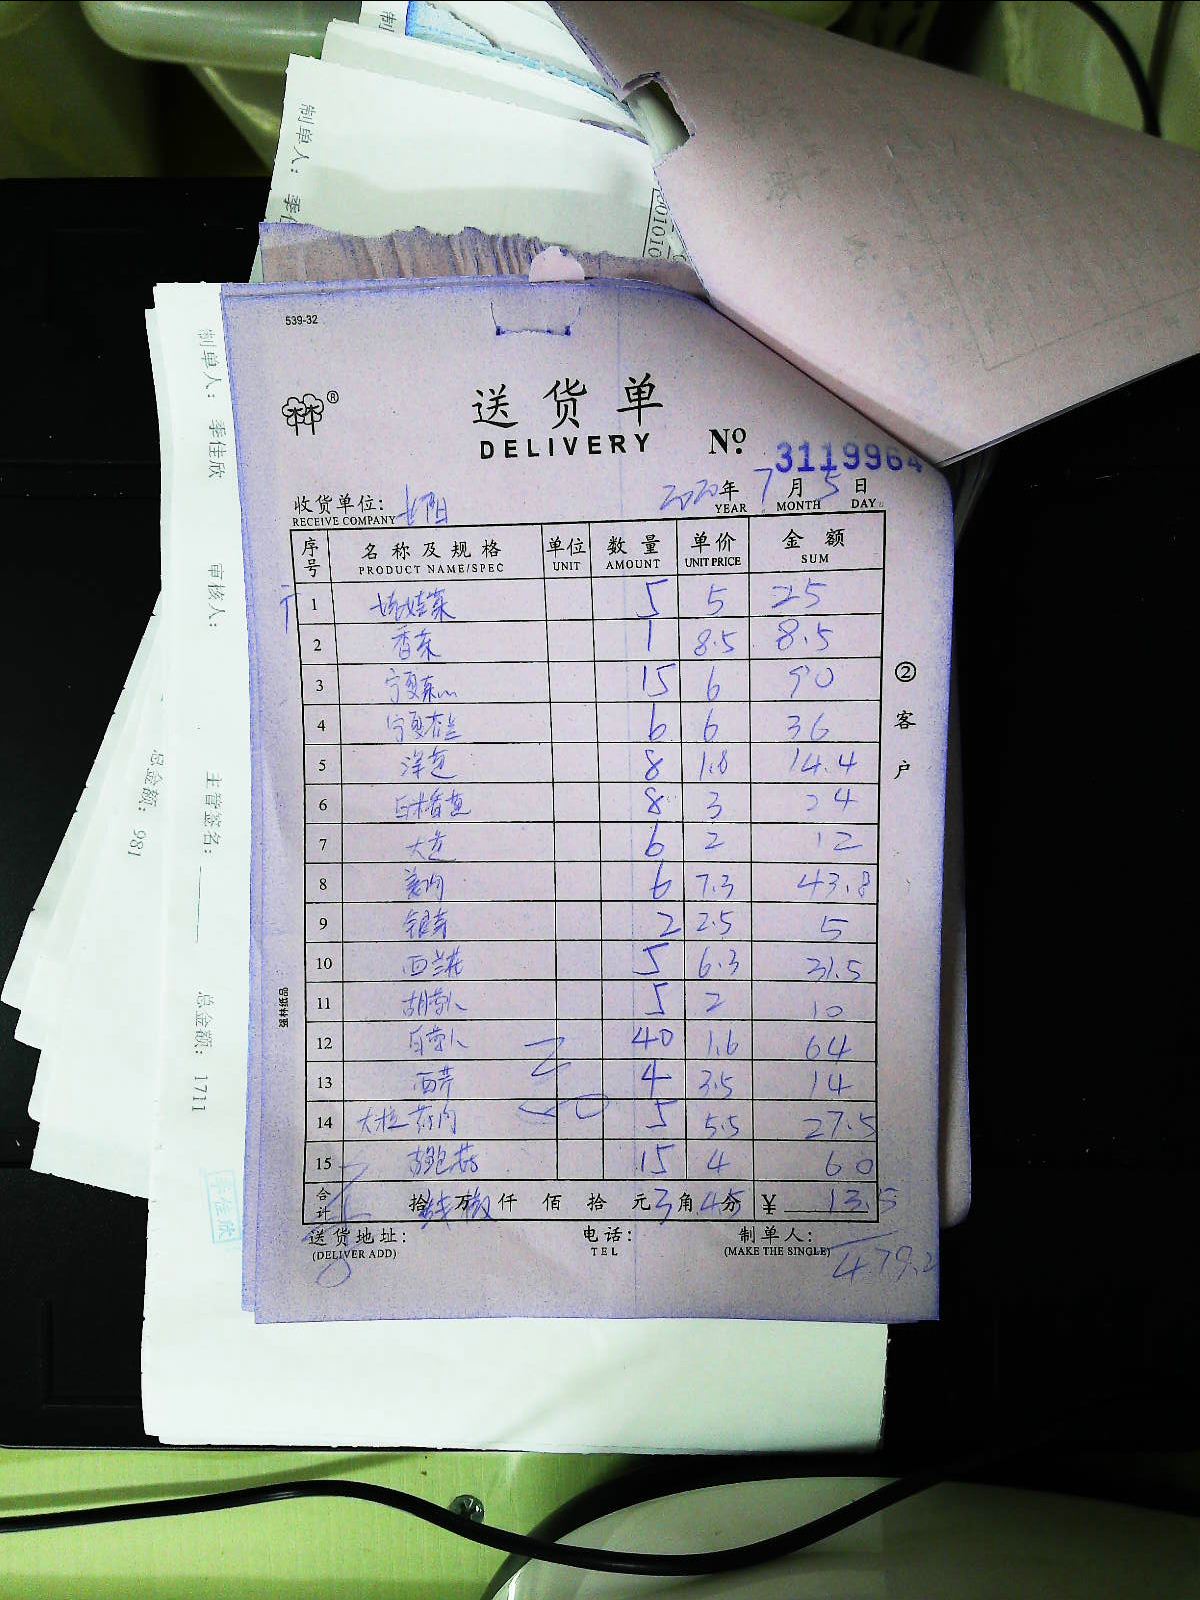 制
制单人: 季佳
01010
539-32
®
送货单
DELIVERY
No. 3119964
收货单位:
RECEIVE COMPANY
2020年 7月 5日
YEAR MONTH DAY
序号 名称及规格 单位 数量 单价 金额
PRODUCT NAME/SPEC UNIT AMOUNT UNIT PRICE SUM
1 娃娃菜 5 5 25
2 香菜 1 8.5 8.5
3 宁夏菜心 15 6 90
4 宁夏芥兰 6 6 36
5 洋葱 8 1.8 14.4
6 8 3 24
7 大葱 6 2 12
8 姜肉 6 7.3 43.8
9 银芽 2 2.5 5
10 西兰花 5 6.3 31.5
11 胡萝卜 5 2 10
12 白萝卜 40 1.6 64
13 西芹 4 3.5 14
14 大粒 肉 5 5.5 27.5
15 15 4 60
合计 拾 万 仟 佰 拾 元 3 角 4.5 分 ¥ 13.5
送货地址: 电话: 制单人:
(DELIVER ADD) TEL (MAKE THE SINGLE)
479.2
②客户
强林纸品
制单人: 季佳欣 审核人: 主管签名: 总金额: 1711
季佳欣
总金额: 981